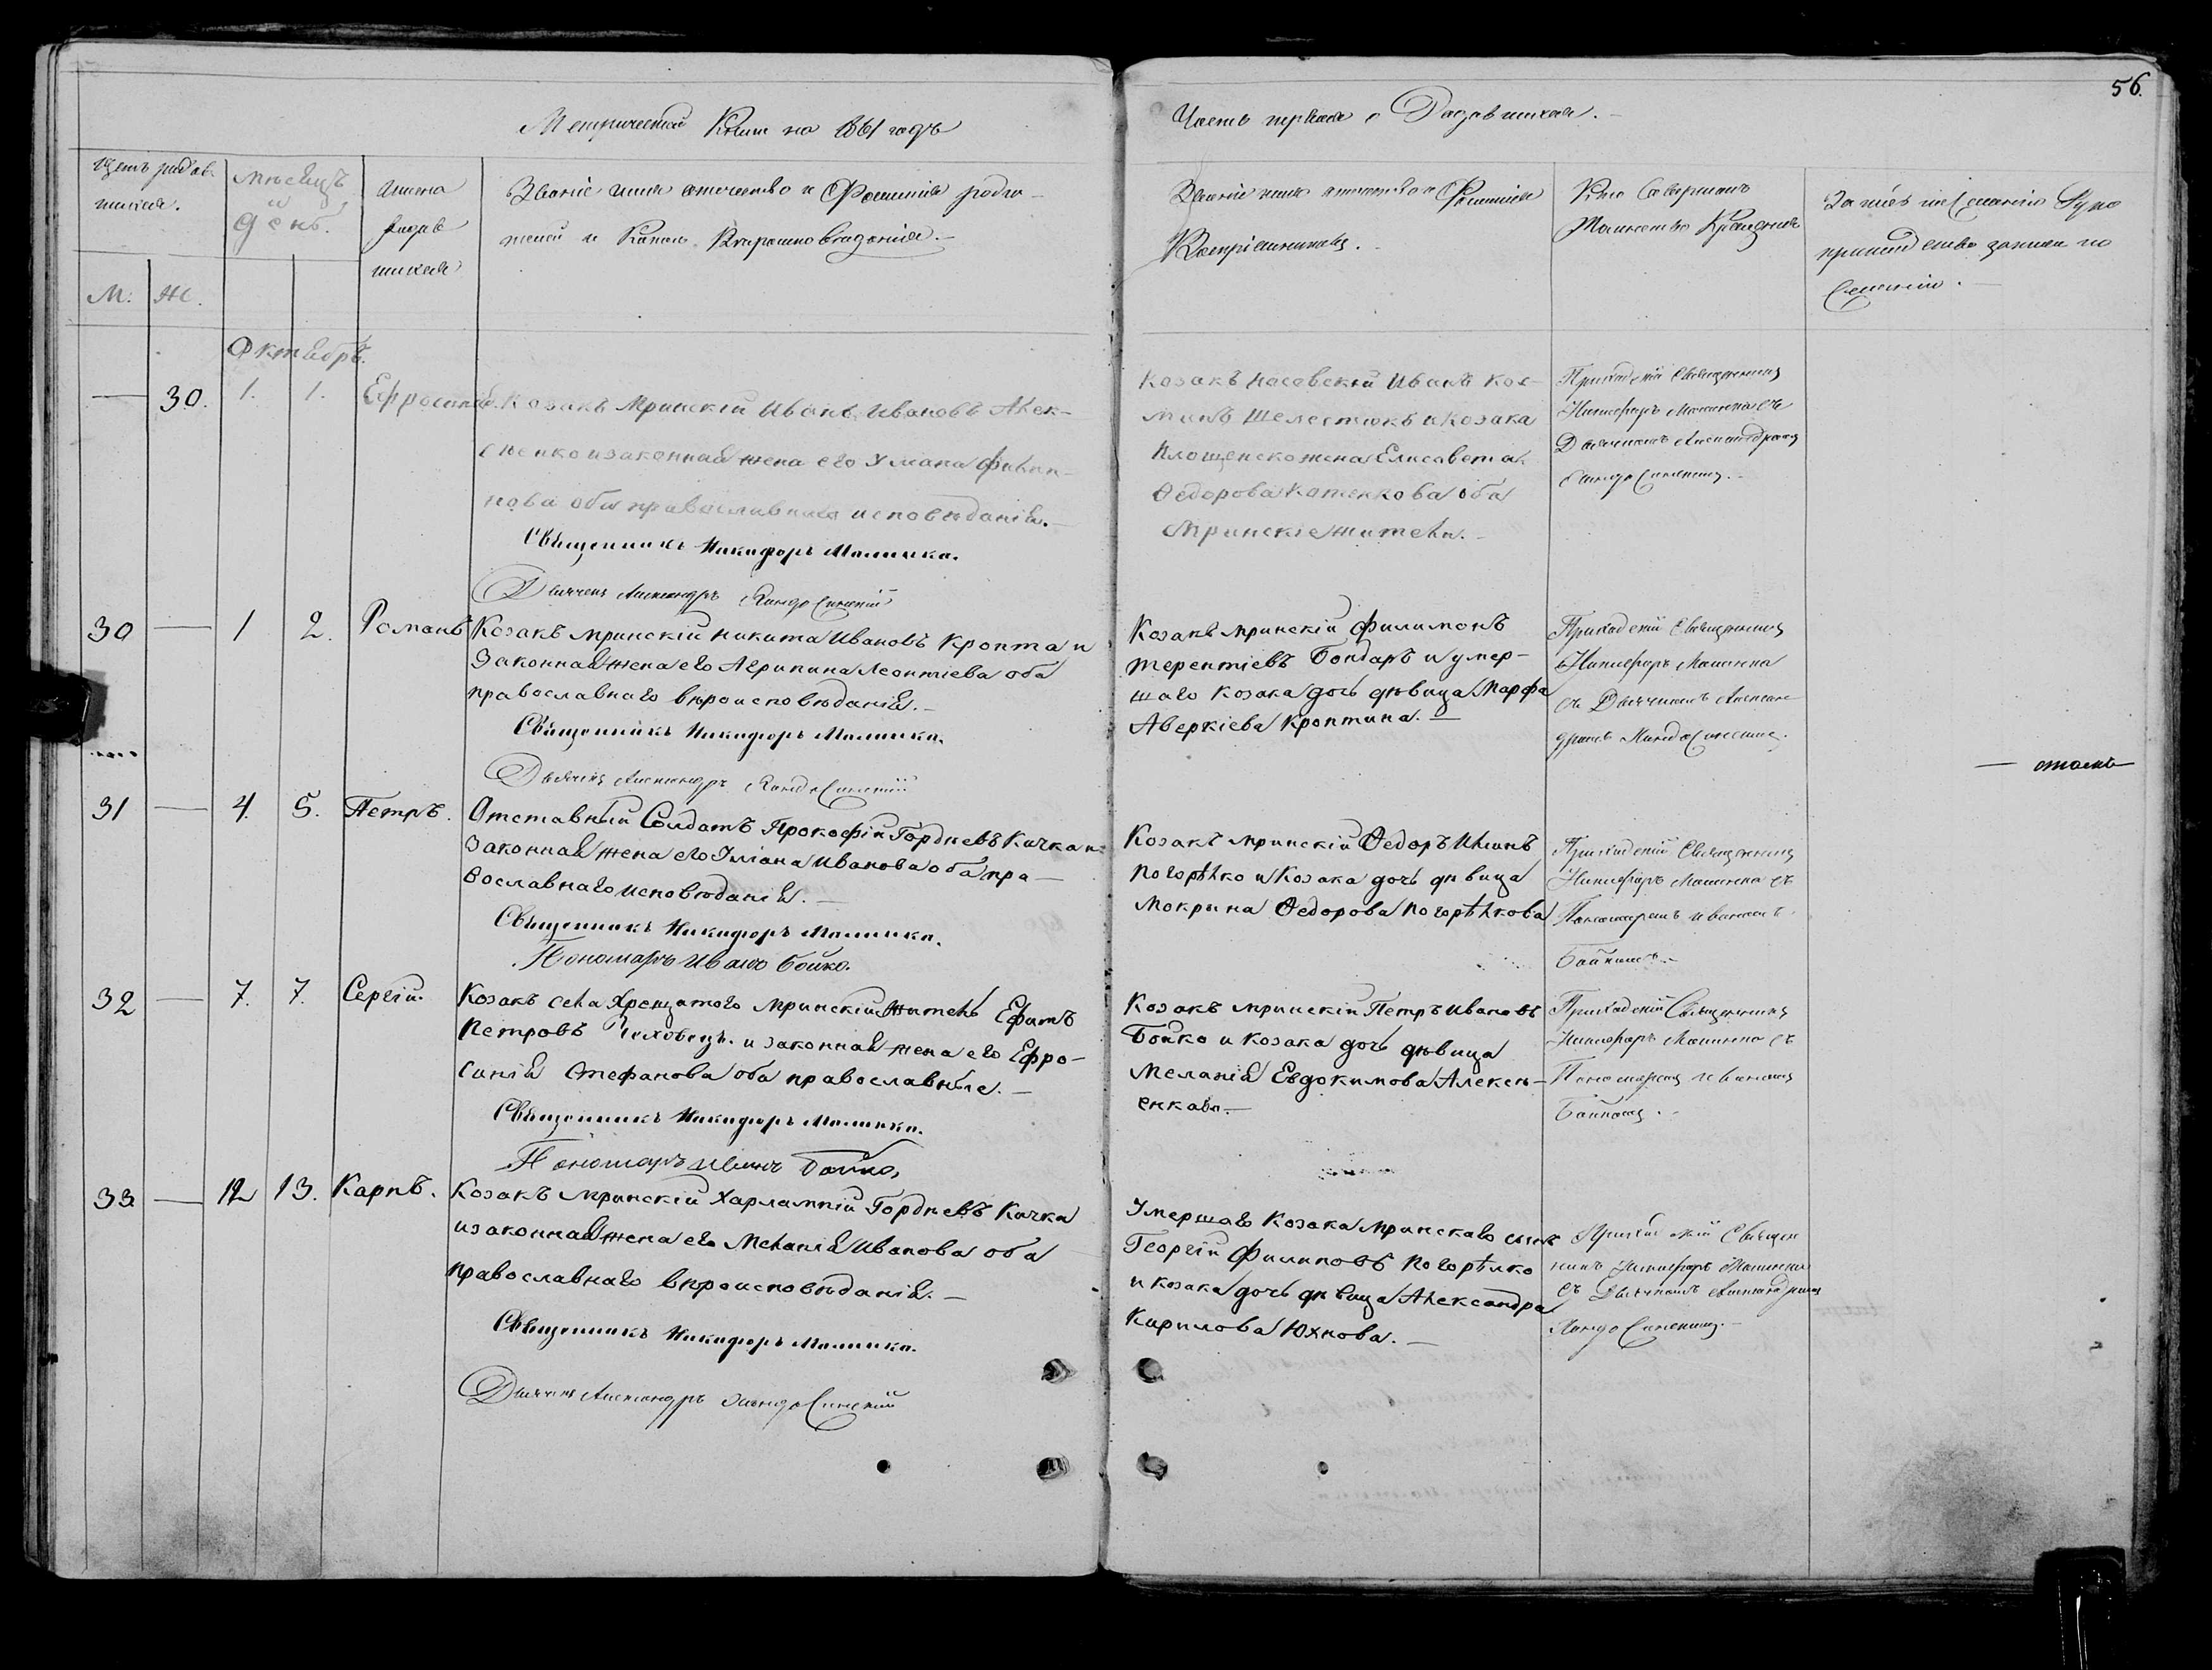 56.
Метрической Книги на 1861 годъ
Часть первая о Родившихся.
Щетъ родив-
шихся.
М. Ж.
Мѣсецъ
день.
Имена
родив
шихся
Званіе имя отчество и Фамилія роди-
телей и какого Вѣроисповеданія.
Званіе имя отчество и Фамилія
Воспріемниковъ.
Кто Совершалъ
Таинство Крещенія
Октябрь.
— 30. 1. 1. Ефросинія.
Козакъ Мринскій Иванъ Ивановъ Алек-
сѣенко и законная жена его Уліана Филип-
пова оба православнаго исповѣданія.
Священникъ Никифоръ Малинка.
Дьячекъ Александръ
Козакъ Носовскій Иванъ Кос-
минъ Шелестюкъ и Козака
Площенско жена Елисавета
Ѳедорова Котенкова оба
Мринскіе жители.
Приходскій Священникъ
Никифоръ Малинка съ
Дьячкомъ Александромъ
30 — 1 2. Романъ
Козакъ мринскій Никита Ивановъ Кропта и
Законная жена его Агрипина Леонтіева оба
православнаго вѣроисповѣданія.
Священникъ Никифоръ Малинка.
Дьячекъ Александръ
Козакъ мринскій Филимонъ
Терентіевъ Бондаръ и умер-
шаго козака дочь дѣвица Марфа
Аверкіева Кроптина.
Приходскій Священникъ
Никифоръ Малинка
съ Дьячкомъ Алексан-
дромъ
31 — 4. 5. Петръ.
Отставный Солдатъ Прокофій Гордѣевъ Качка и
Законная жена его Уліана Иванова оба пра-
вославнаго исповѣданія.
Священникъ Никифоръ Малинка.
Пономарь Иванъ Бойко.
Козакъ мринскій Ѳедоръ Ильинъ
Погорѣлко и Козака дочь дѣвица
Мокрина Ѳедорова Погорѣлкова
Приходскій Священникъ
Никифоръ Малинка съ
Пономаремъ Иваномъ
Бойкомъ.
32 — 7. 7. Сергій.
Козакъ села Хрещатого мринскій житель Ефимъ
Петровъ и законная жена его Ефро-
синія Стефанова оба православные.
Священникъ Никифоръ Малинка.
Пономарь Иванъ Бойко.
Козакъ мринскій Петръ Ивановъ
Бойко и козака дочь дѣвица
Меланія Евдокимова Алексѣ-
енкова.
Приходскій Священникъ
Никифоръ Малинка съ
Пономаремъ Иваномъ
Бойкомъ.
33 — 12 13. Карпъ.
Козакъ Мринскій Харлампій Гордѣевъ Качка
и законная жена его Меланія Иванова оба
православнаго вѣроисповѣданія.
Священникъ Никифоръ Малинка.
Дьячекъ Александръ
Умершаго Козака Мринскаго сынъ
Георгій Филиповъ Погорѣлко
и козака дочь дѣвица Александра
Кирилова Юхнова.
Приходскій Священ
никъ Никифоръ Малинка
съ Дьячкомъ Александромъ